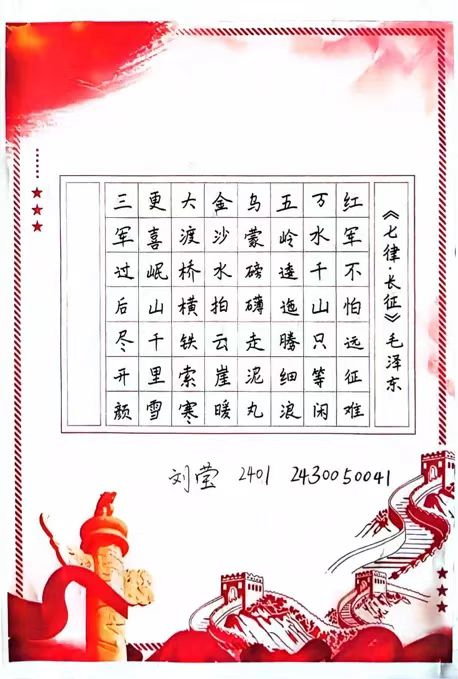 《七律·长征》毛泽东
红军不怕远征难
万水千山只等闲
五岭逶迤腾细浪
乌蒙磅礴走泥丸
金沙水拍云崖暖
大渡桥横铁索寒
更喜岷山千里雪
三军过后尽开颜
刘莹 2401 2430050041